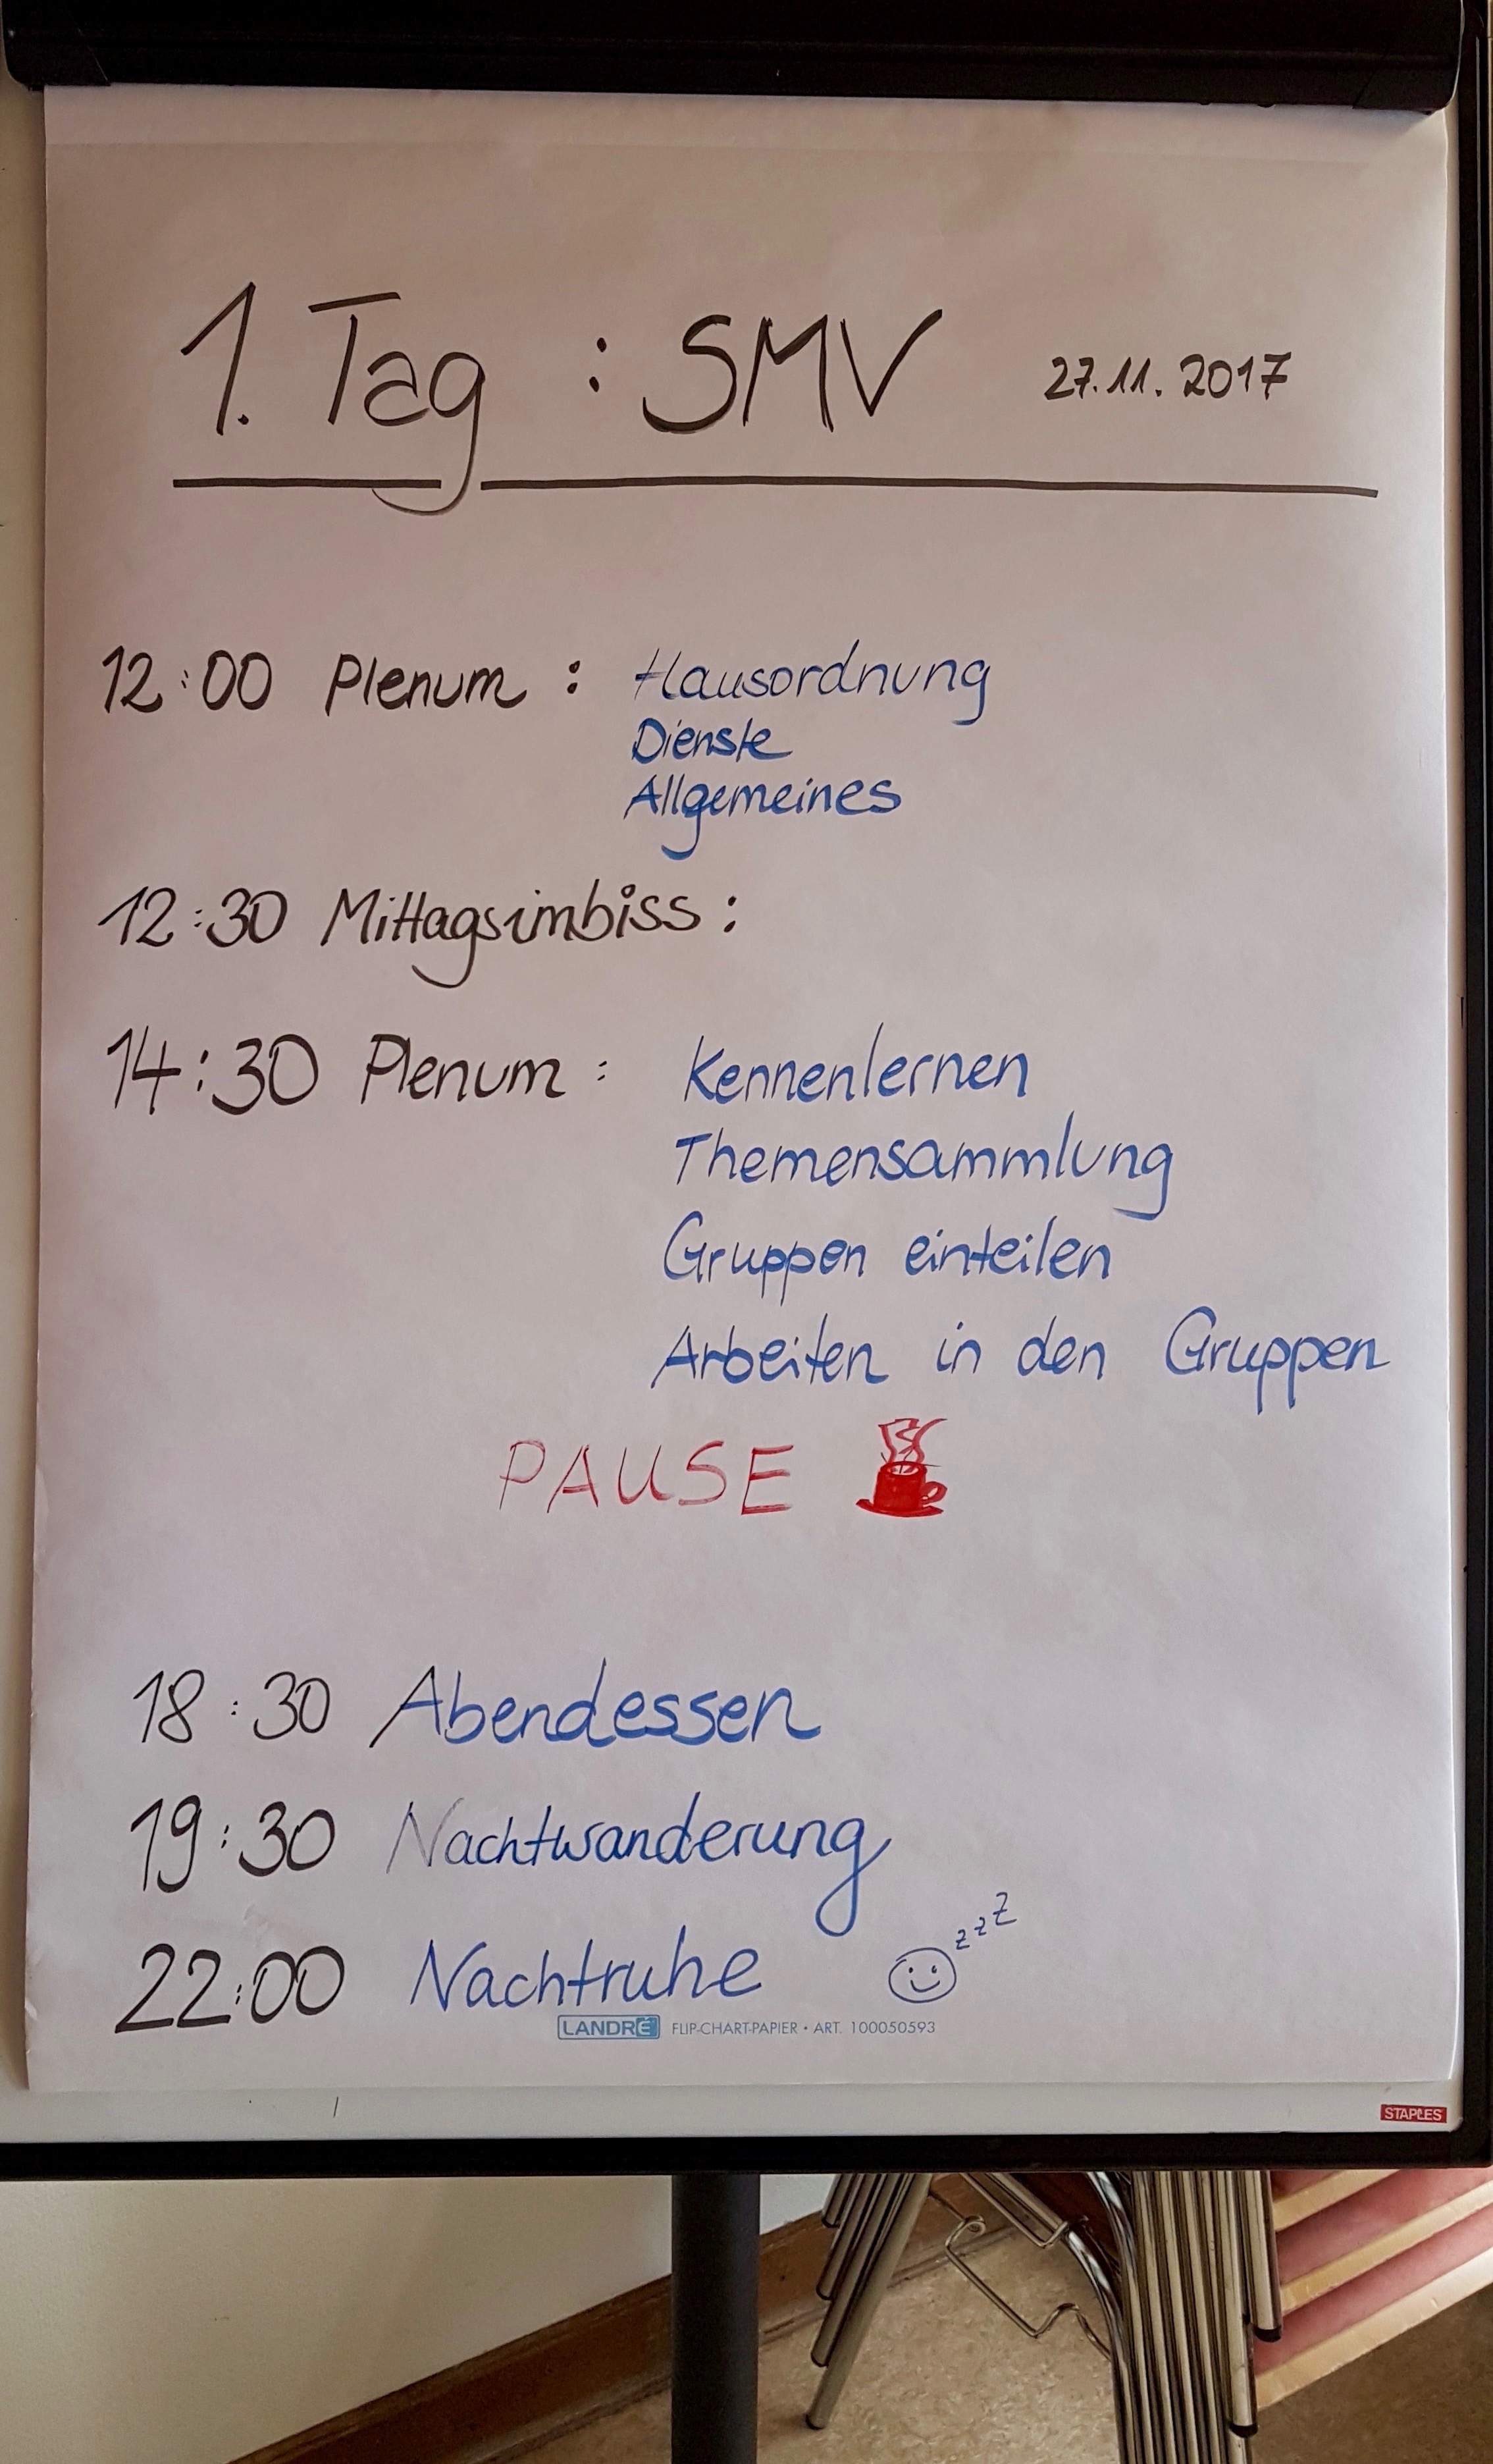 1. Tag : SMV 27.11.2017
12:00 Plenum : Hausordnung
Dienste
Allgemeines
12:30 Mittagsimbiss :
14:30 Plenum : Kennenlernen
Themensammlung
Gruppen einteilen
Arbeiten in den Gruppen
PAUSE
18:30 Abendessen
19:30 Nachtwanderung
22:00 Nachtruhe zzZ
LANDRÉ FLIP-CHART-PAPIER • ART. 100050593
STAPLES